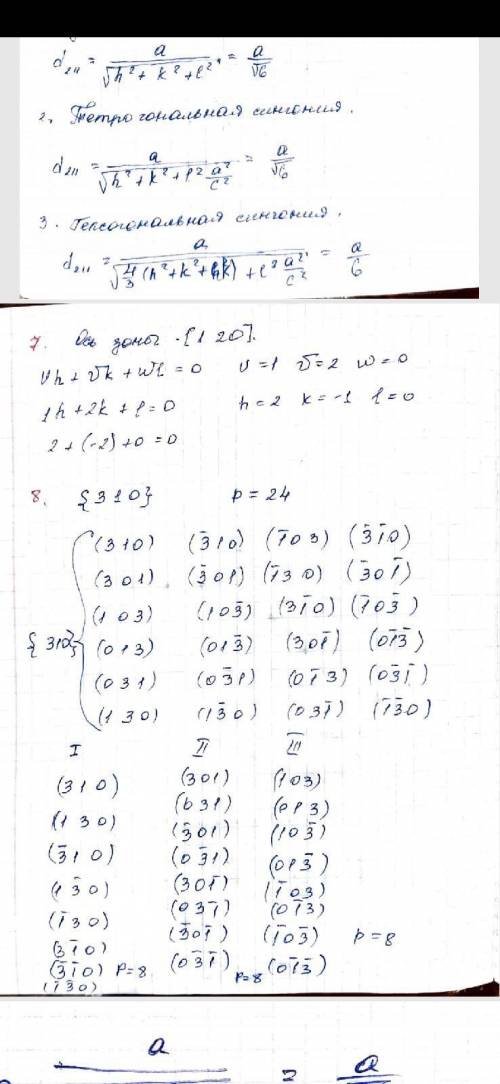 d₂₁₁ = a / √(h² + k² + l²) = a/√6
2. Тетрогональная сингония.
d₂₁₁ = a / √(h² + k² + l² a²/c²) = a/√6
3. Гексогональная сингония.
d₂₁₁ = a / √(4/3 (h² + k² + hk) + l² a²/c²) = a/6
7. Ось зоны - [1 2 0].
Uh + Vk + Wl = 0 U=1 V=2 W=0
1h + 2k + l = 0 h=2 k=-1 l=0
2 + (-2) + 0 = 0
8. {3 1 0} p = 24
(3 1 0) (3̄ 1 0) (1̄ 0 3) (3̄ 1̄ 0)
(3 0 1) (3̄ 0 1) (1̄ 3 0) (3̄ 0 1̄)
(1 0 3) (1 0 3̄) (3 1̄ 0) (1̄ 0 3̄)
{310} (0 1 3) (0 1 3̄) (3 0 1̄) (0 1̄ 3̄)
(0 3 1) (0 3̄ 1) (0 1̄ 3) (0 3̄ 1̄)
(1 3 0) (1 3̄ 0) (0 3 1̄) (1̄ 3̄ 0)
I II III
(3 1 0) (3 0 1) (1 0 3)
(1 3 0) (0 3 1) (0 1 3)
(3̄ 1 0) (3̄ 0 1) (1 0 3̄)
(1 3̄ 0) (0 3̄ 1) (0 1 3̄)
(1̄ 3 0) (3 0 1̄) (1̄ 0 3)
(3 1̄ 0) (0 3 1̄) (0 1̄ 3)
(3̄ 1̄ 0) P=8 (3̄ 0 1̄) (1̄ 0 3̄) p=8
(1̄ 3̄ 0) (0 3̄ 1̄) p=8 (0 1̄ 3̄)
a
= a